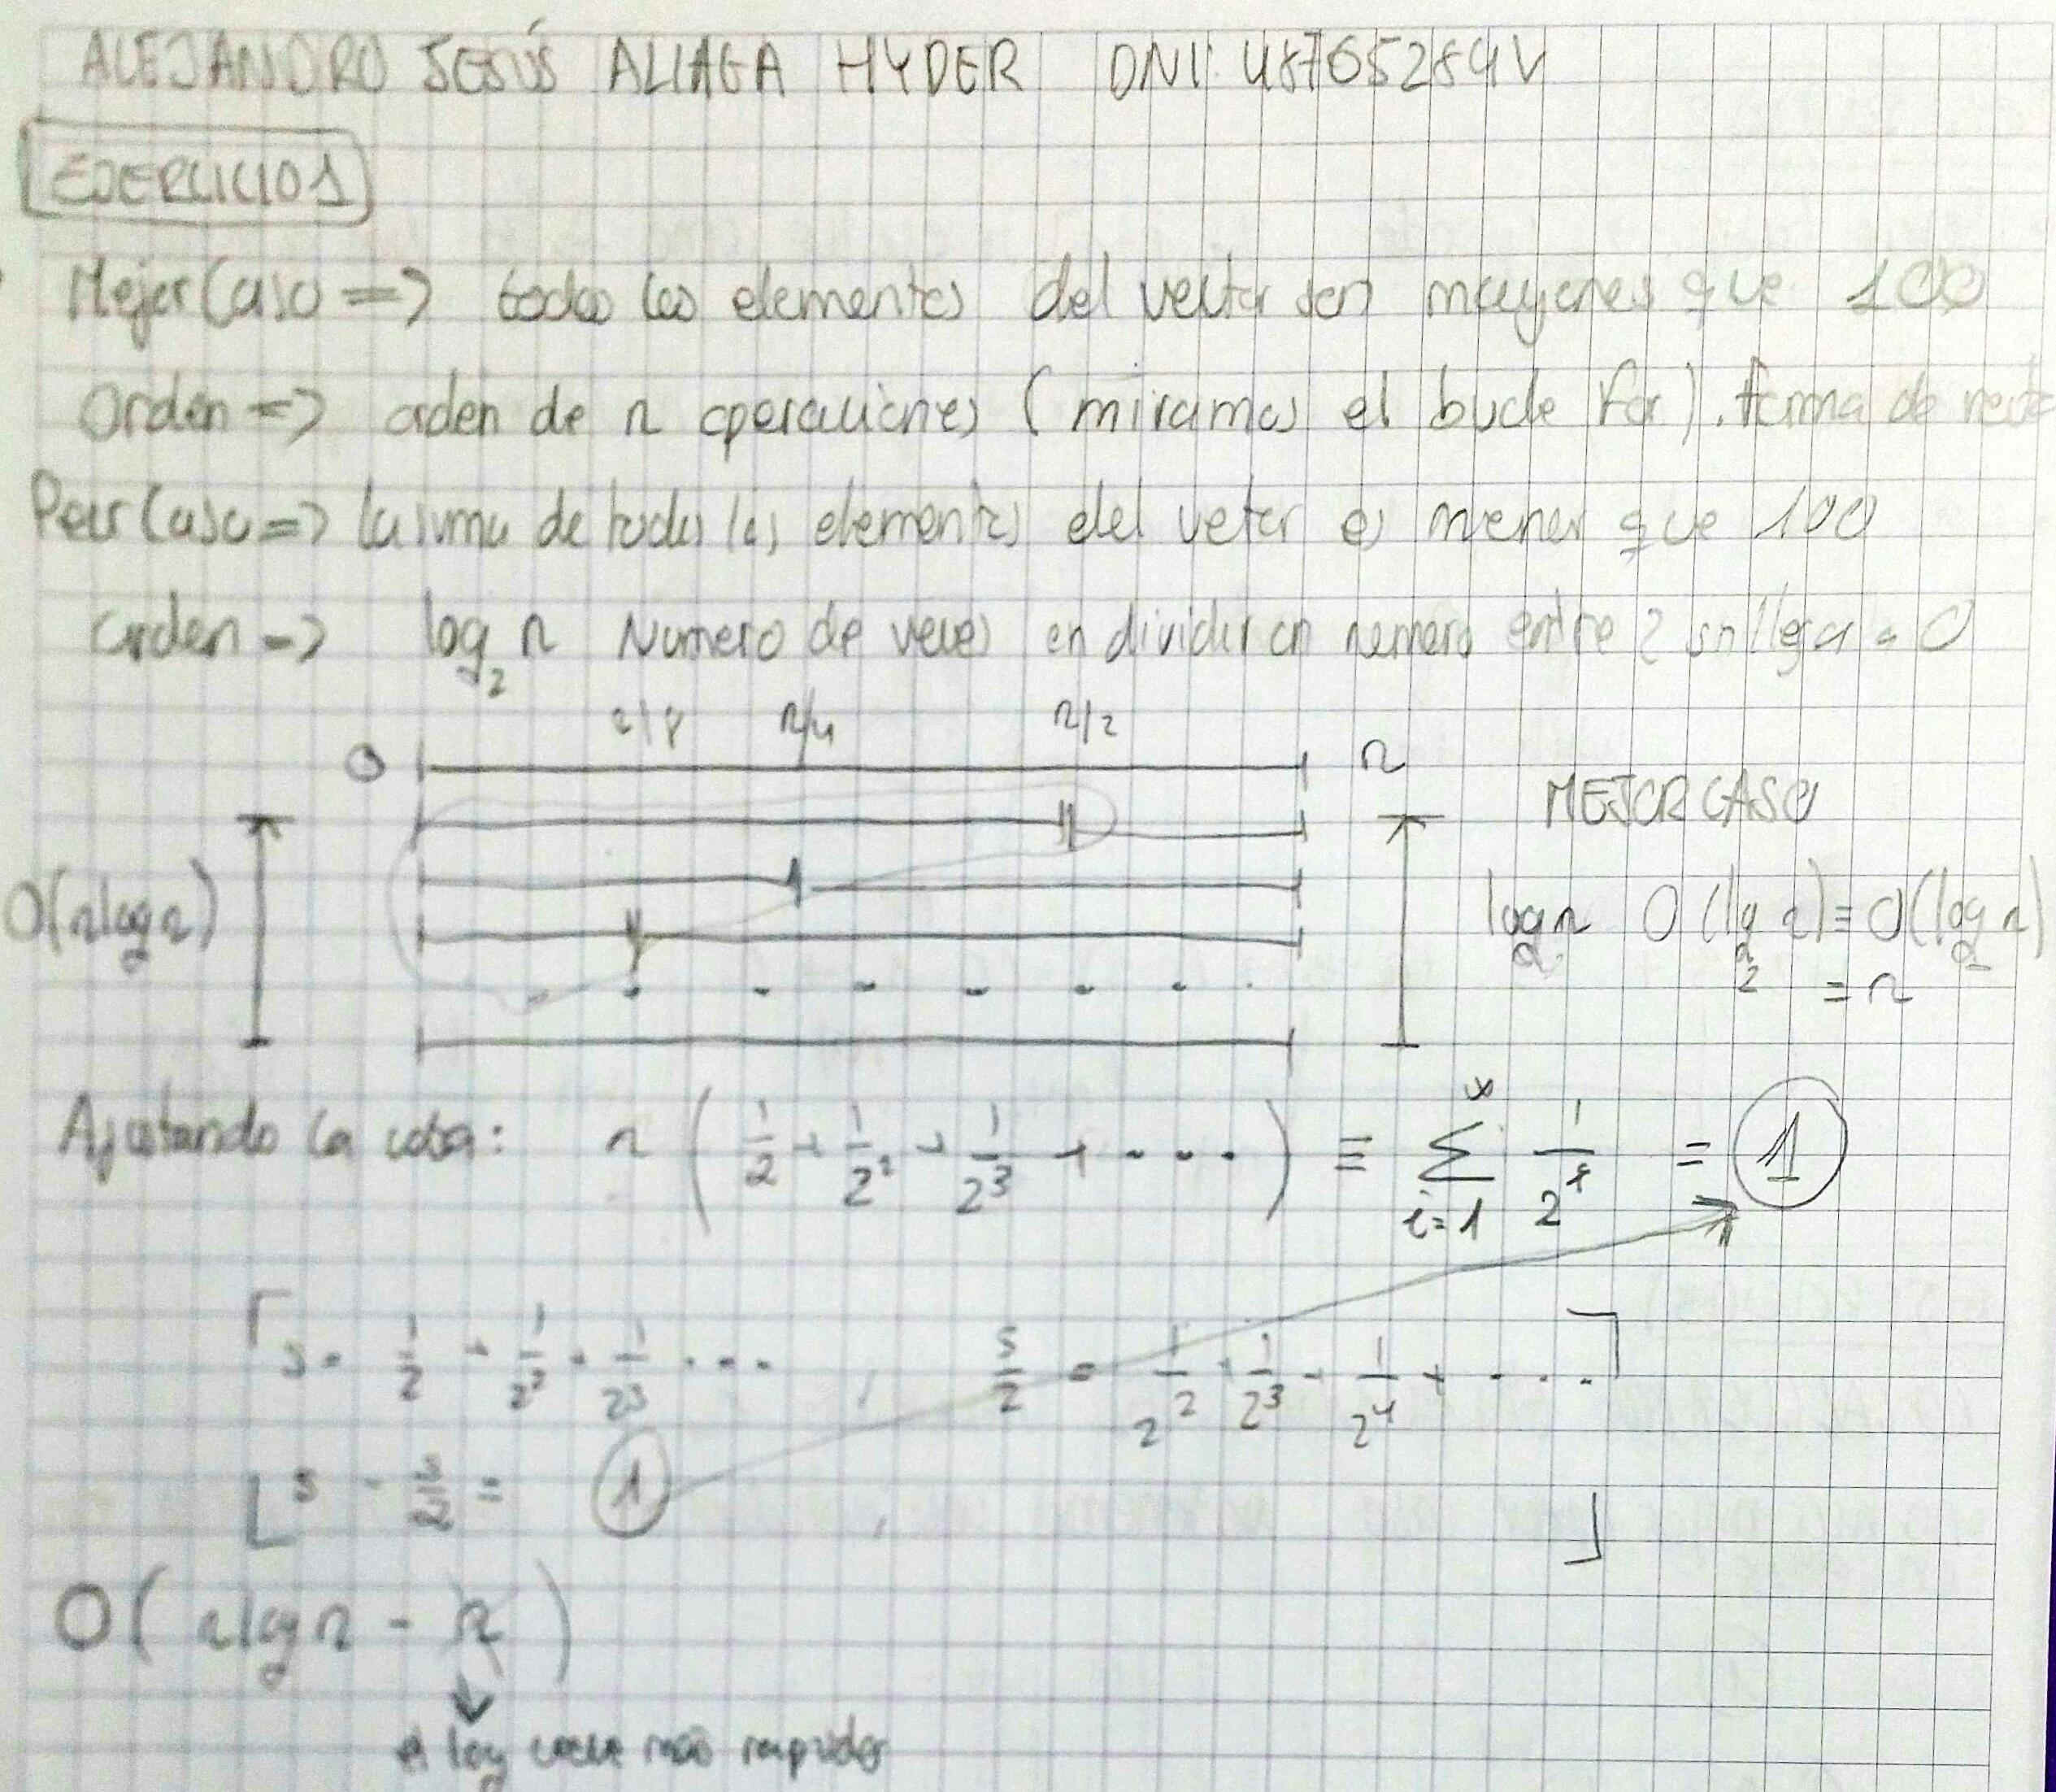 ALEJANDRO JESÚS ALIAGA HYDER DNI: 48765284V
EJERCICIO 1
Mejor Caso => todos los elementos del vector son mayores que 100
Orden => orden de n operaciones (miramos el bucle for). forma de
Peor Caso => la suma de todos los elementos del vetor es menor que 100
orden => log₂ n Numero de veces en dividir un numero entre 2 sn llegar a 0
n/8 n/4 n/2
0 n
MEJOR CASO
O(n log₂ n)
log₂ n O(lg n) ≡ O(log₂ n)
= n
Ajustando la cota: n (1/2 + 1/2² + 1/2³ + ....) ≡ ∑_{i=1}^{∞} 1/2^i = 1
s = 1/2 + 1/2² + 1/2³ ... , s/2 = 1/2² + 1/2³ + 1/2⁴ + ....
s - s/2 = 1
O( n log n - n )
log crece mas rapido